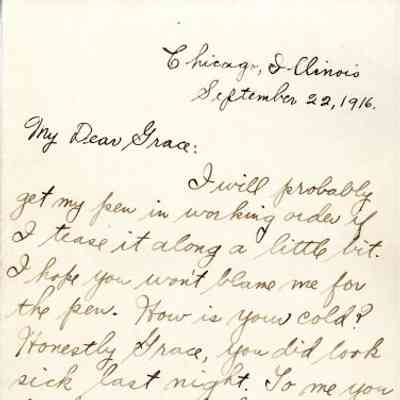 Chicago, Illinois
September 22, 1916.
My Dear Grace:
I will probably
get my pen in working order if
I tease it along a little bit.
I hope you won't blame me for
the pen. How is your cold?
Honestly Grace, you did look
sick last night. To me you